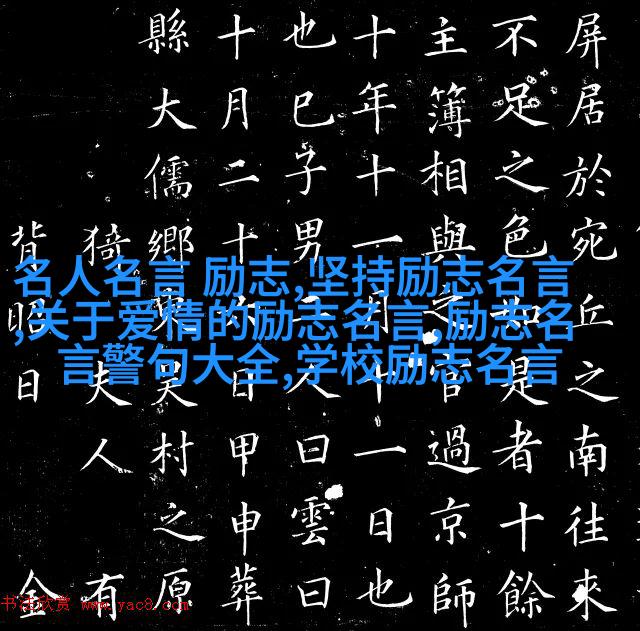 屏居於宛丘之南往來
不足之色如是者十餘
主簿相與之官過京師
十年十一月十一日也
也巳子男人曰雲曰
十月二十日甲申葬
縣大儒鄉東吳村之原
猗夫人有
背昭日金
名人名言 励志,坚持励志名言
,关于爱情的励志名言,励志名
言警句大全,学校励志名言
书法欣赏 www.yac8.com